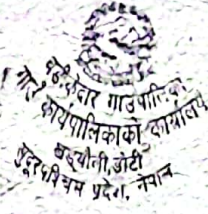 बडीकेदार गाउँपालिका
गाउँ कार्यपालिकाको कार्यालय
डोटी
सुदूरपश्चिम प्रदेश, नेपाल